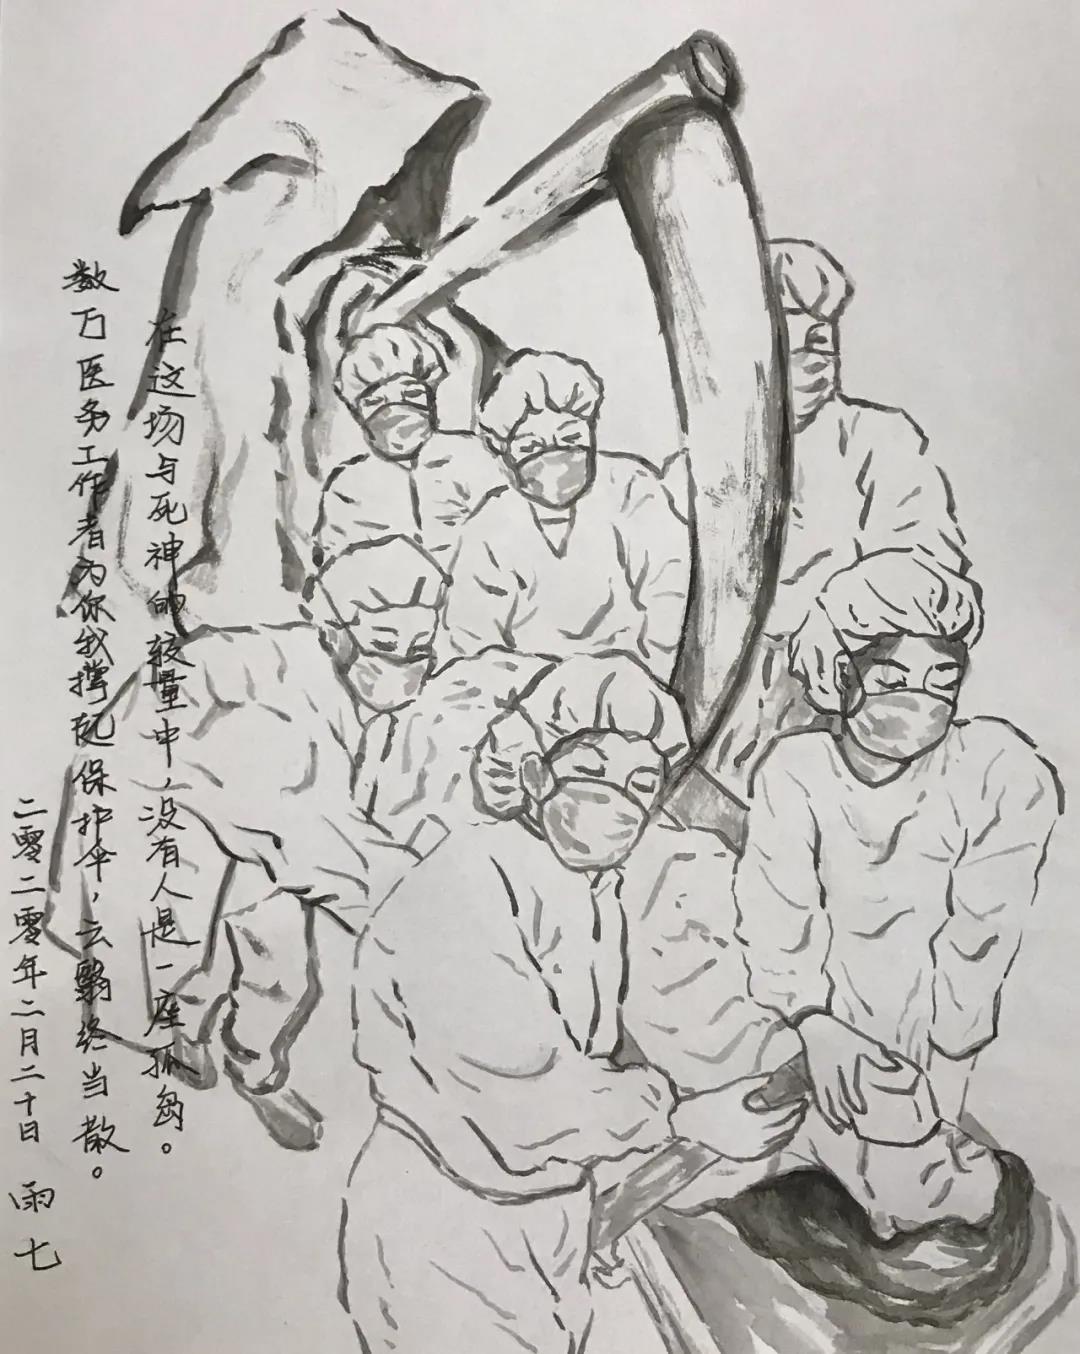 在这场与死神的较量中，没有人是一座孤岛。
数万医务工作者为你我撑起保护伞，云翳终当散。
二零二零年二月二十日 雨七